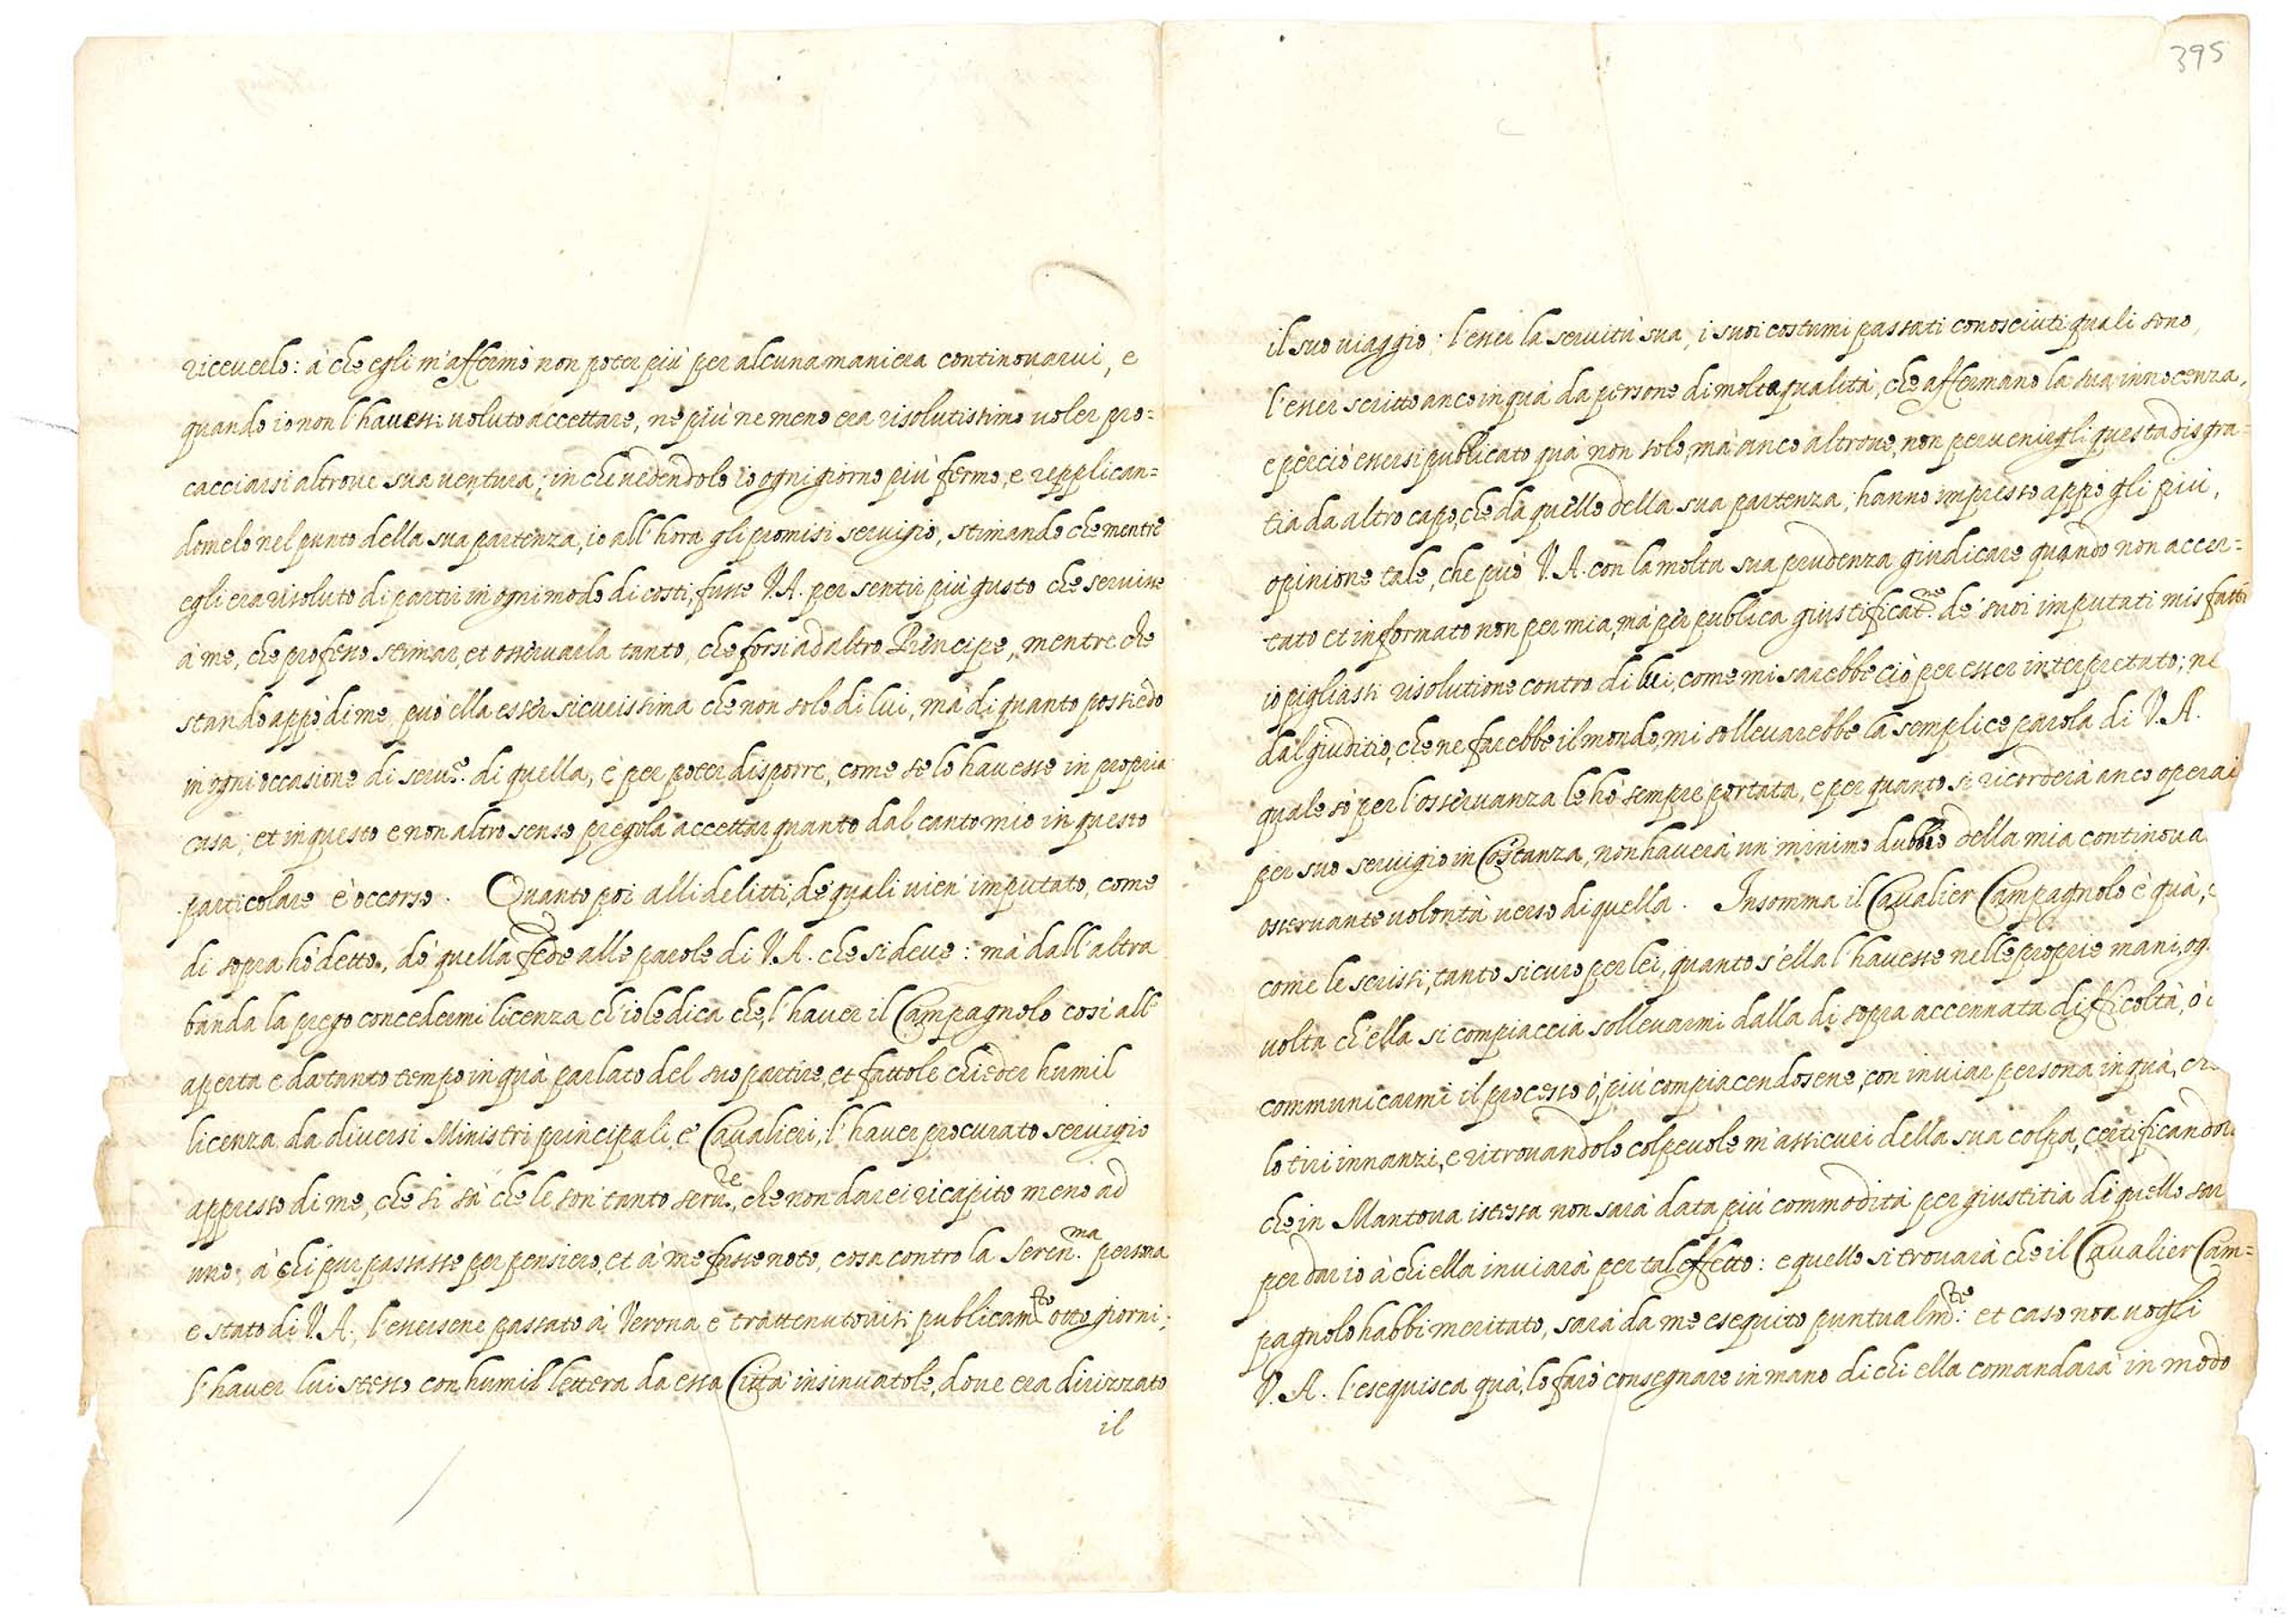 395
riceverlo: à che egli m'affermò non poter più per alcuna maniera continovarvi, e
quando io non l'havessi voluto accettare, ne più ne meno era risolutissimo voler pro=
cacciarsi altrove sua ventura; in che vedendolo io ogni giorno più fermo, e repplican=
domelo nel punto della sua partenza, io all'hora gli promisi servigio, stimando che mentre
egli era risoluto di partir in ogni modo di costì, fusse V.A. per sentir più gusto che servisse
à me, che professo stimar, et osservarla tanto, che forsi ad altro Principe, mentre che
stando appò di me può ella esser sicurissima che non solo di lui, mà di quanto possiedo
in ogni occasione di serv.e di quella, è per poter disporre, come se lo havesse in propria
casa; et in questo e non altro senso pregola accettar quanto dal canto mio in questo
particolare è occorso. Quanto poi alli delitti, de quali vien' imputato, come
di sopra hò detto, dò quella fede alle parole di V.A. che si deve: mà dall'altra
banda la prego concedermi licenza ch'io le dica che, l'haver il Campagnolo così all'
aperta e da tanto tempo in quà parlato del suo partire, et fattole chieder humil
licenza da diversi Ministri principali, e Cavalieri, l'haver procurato servigio
appresso di me, che si sà che le son tanto serv.re, che non darei ricapito meno ad
uno, à chi pur passasse per pensiero, et à me fusse noto, cosa contro la Seren.ma persona
e stato di V.A.; l'essersene passato à Verona e trattenutovisi publicam.te otto giorni;
l'haver lui stesso con humil lettera da essa Città insinuatole, dove era dirizzato
il
il suo viaggio; l'esser la servitù sua, i suoi costumi passati conosciuti quali sono,
l'esser scritto anco in quà da persone di molta qualità, che affermano la sua innocenza,
e perciò essersi publicato quà non solo, mà anco altrove, non pervenirgli questa disgra=
tia da altro capo, che da quello della sua partenza; hanno impresso appò gli più,
opinione tale, che può V.A. con la molta sua prudenza giudicare quando non accer=
tato et informato non per mia, mà per publica giustificat.ne de' suoi imputati misfatti
io pigliassi risolutione contro di lui, come mi sarebbe ciò per esser interpretato; ne
dal giuditio, che ne farebbe il mondo, mi sollevarebbe la semplice parola di V.A.
quale sò per l'osservanza le hò sempre portata, e per quanto si ricorderà anco operai
per suo servigio in Costanza, non haverà un minimo dubbio della mia continova
osservante volontà verso di quella. Insomma il Cavalier Campagnolo è quà,
come le scrissi, tanto sicuro per lei, quanto s'ella l'havesse nelle proprie mani, og
volta ch'ella si compiaccia sollevarmi dalla di sopra accennata difficoltà, ò
communicarmi il processo ò, più compiacendosene, con inviar persona in quà,
lo tiri innanzi, e ritrovandolo colpevole m'assicuri della sua colpa, certificandola
che in Mantova istessa non sarà data più commodità per giustitia di quello sar
per dar io à chi ella inviarà per tal effetto: e quello si trovarà che il Cavalier Cam=
pagnolo habbi meritato, sarà da me eseguito puntualm.te: et caso non vogli
V.A. l'esequisca quà, lo farò consegnare in mano di chi ella comandarà in modo